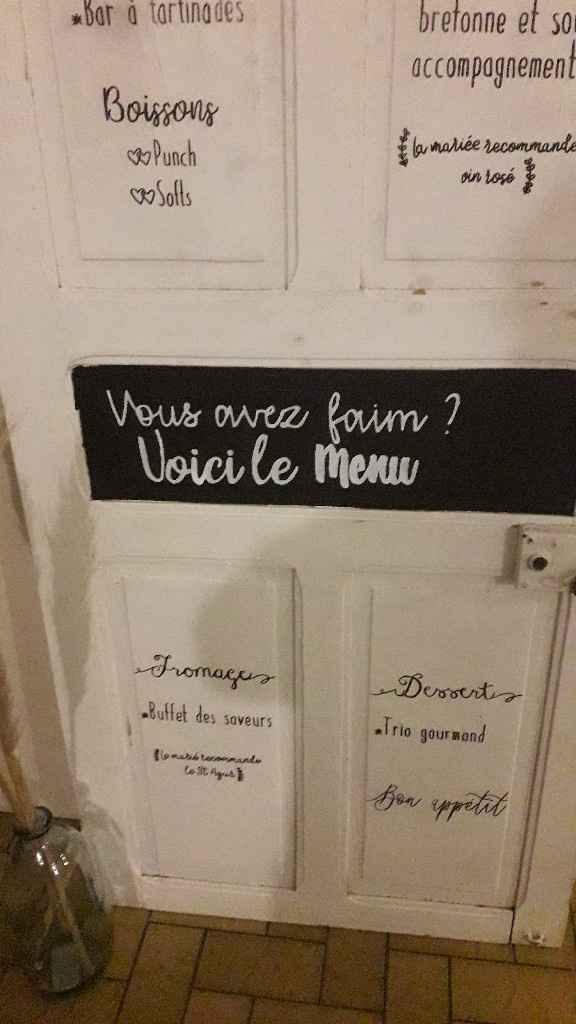 *Bar à tartinades
Boissons
Punch
Softs
bretonne et so
accompagnement
la mariée recommande
vin rosé
Vous avez faim ?
Voici le Menu
Fromages
*Buffet des saveurs
Le marié recommande
le St Agur
Dessert
*Trio gourmand
Bon appétit